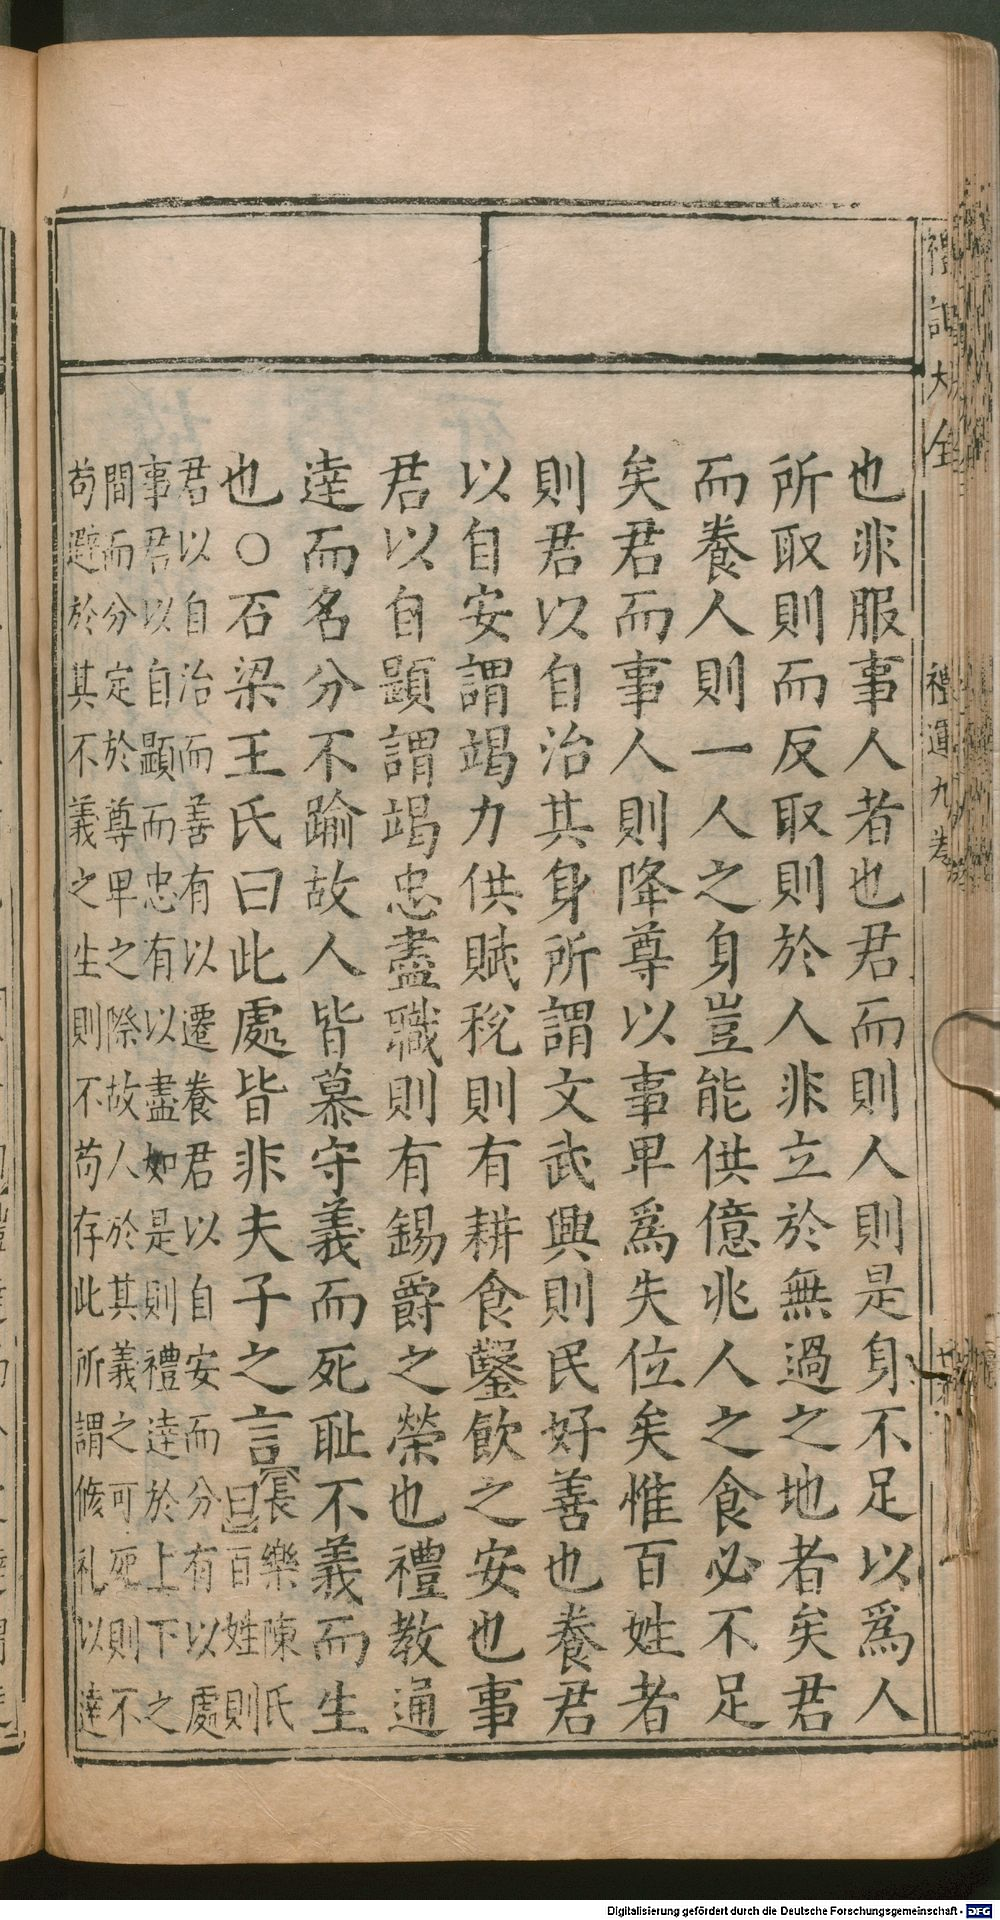 禮記大全
禮運九卷
也非服事人者也君而則人則是身不足以爲人
所取則而反取則於人非立於無過之地者矣君
而養人則一人之身豈能供億兆人之食必不足
矣君而事人則降尊以事卑爲失位矣惟百姓者
則君以自治其身所謂文武興則民好善也養君
以自安謂竭力供賦稅則有耕食鑿飲之安也事
君以自顯謂竭忠盡職則有錫爵之榮也禮教通
達而名分不踰故人皆慕守義而死耻不義而生
也○石梁王氏曰此處皆非夫子之言
長樂陳氏
曰百姓則
君以自治而善有以遷養君以自安而分有以處
事君以自顯而忠有以盡如是則禮達於上下之
間而分定於尊卑之際故人於其義之可死則不
苟避於其不義之生則不苟存此所謂脩礼以達
Digitalisierung gefördert durch die Deutsche Forschungsgemeinschaft - DFG